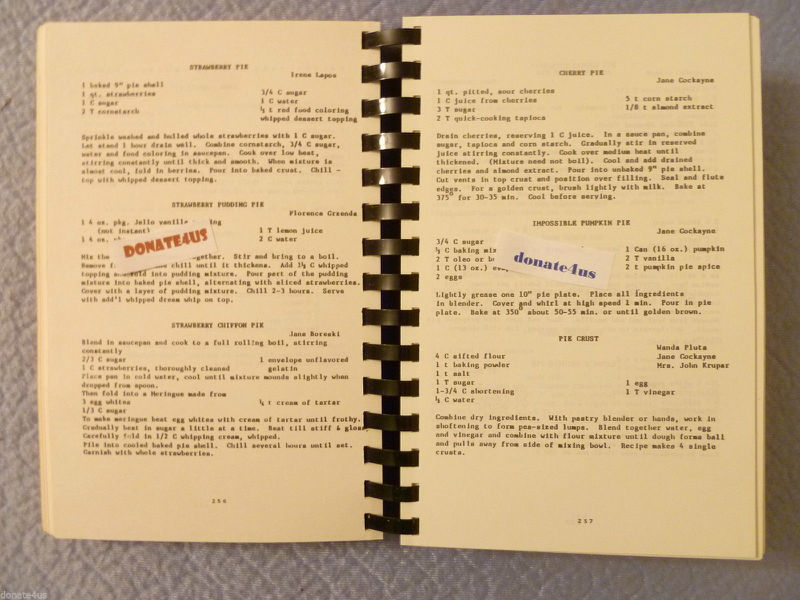 STRAWBERRY PIE
Irene Lapos
1 baked 9" pie shell
1 qt. strawberries 3/4 C sugar
1 C sugar 1 C water
2 T cornstarch ½ t red food coloring
whipped dessert topping
Sprinkle washed and hulled whole strawberries with 1 C sugar.
Let stand 1 hour drain well. Combine cornstarch, 3/4 C sugar,
water and food coloring in saucepan. Cook over low heat,
stirring constantly until thick and smooth. When mixture is
almost cool, fold in berries. Pour into baked crust. Chill -
top with whipped dessert topping.
STRAWBERRY PUDDING PIE
Florence Grzenda
1 4 oz. pkg. Jello vanilla
(not instant) 1 T lemon juice
1 4 oz. 2 C water
DONATE4US
Mix the together. Stir and bring to a boil.
Remove chill until it thickens. Add 1½ C whipped
topping fold into pudding mixture. Pour part of the pudding
mixture into baked pie shell, alternating with sliced strawberries.
Cover with a layer of pudding mixture. Chill 2-3 hours. Serve
with add'l whipped dream whip on top.
STRAWBERRY CHIFFON PIE
Jane Boreski
Blend in saucepan and cook to a full rolling boil, stirring
constantly
2/3 C sugar 1 envelope unflavored
1 C strawberries, thoroughly cleaned gelatin
Place pan in cold water, cool until mixture mounds slightly when
dropped from spoon.
Then fold into a Meringue made from
3 egg whites ¼ t cream of tartar
1/3 C sugar
To make meringue beat egg whites with cream of tartar until frothy.
Gradually beat in sugar a little at a time. Beat till stiff & gloss
Carefully fold in 1/2 C whipping cream, whipped.
Pile into cooled baked pie shell. Chill several hours until set.
Garnish with whole strawberries.
256
CHERRY PIE
Jane Cockayne
1 qt. pitted, sour cherries
1 C juice from cherries 5 t corn starch
3 T sugar 1/8 t almond extract
2 T quick-cooking tapioca
Drain cherries, reserving 1 C juice. In a sauce pan, combine
sugar, tapioca and corn starch. Gradually stir in reserved
juice stirring constantly. Cook over medium heat until
thickened. (Mixture need not boil). Cool and add drained
cherries and almond extract. Pour into unbaked 9" pie shell.
Cut vents in top crust and position over filling. Seal and flute
edges. For a golden crust, brush lightly with milk. Bake at
375° for 30-35 min. Cool before serving.
IMPOSSIBLE PUMPKIN PIE
Jane Cockayne
3/4 C sugar 1 Can (16 oz.) pumpkin
½ C baking mix 2 T vanilla
2 T oleo or 2 t pumpkin pie spice
1 C (13 oz.)
2 eggs
donate4us
Lightly grease one 10" pie plate. Place all ingredients
in blender. Cover and whirl at high speed 1 min. Pour in pie
plate. Bake at 350° about 50-55 min. or until golden brown.
PIE CRUST
Wanda Pluta
4 C sifted flour Jane Cockayne
1 t baking powder Mrs. John Krupar
1 t salt
1 T sugar 1 egg
1-3/4 C shortening 1 T vinegar
½ C water
Combine dry ingredients. With pastry blender or hands, work in
shoftening to form pea-sized lumps. Blend together water, egg
and vinegar and combine with flour mixture until dough forms ball
and pulls away from side of mixing bowl. Recipe makes 4 single
crusts.
237
donate4us